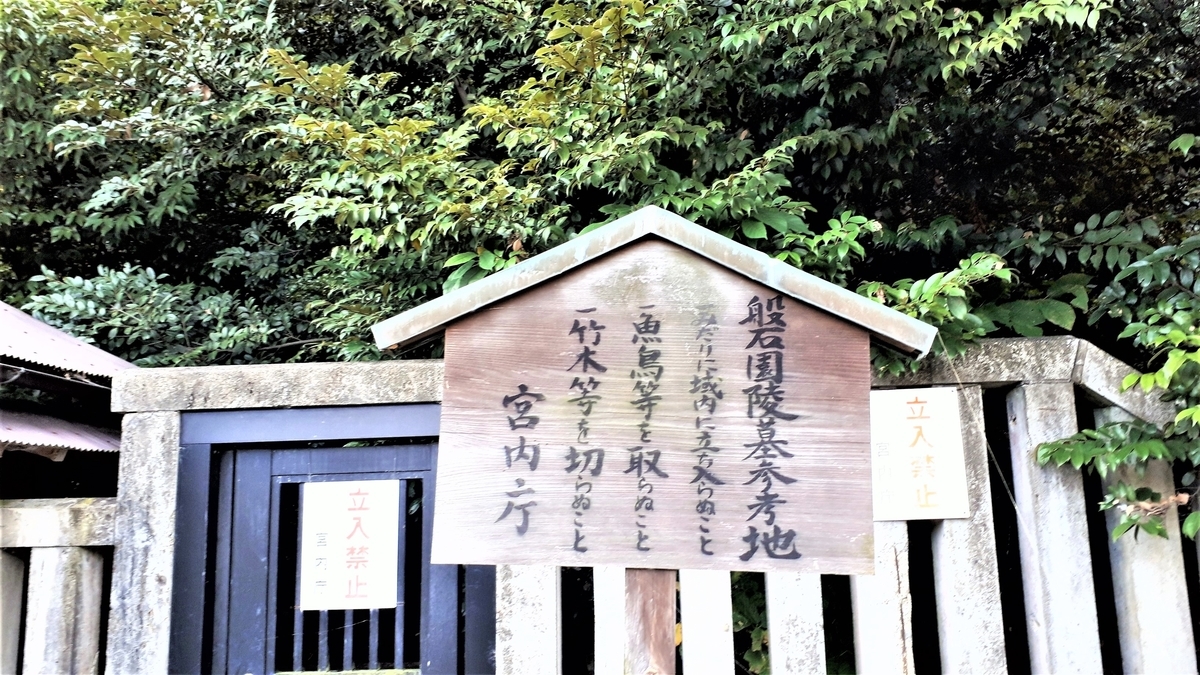 磐石園陵墓参考地
一みだりに域内に立ち入らぬこと
一魚鳥等を取らぬこと
一竹木等を切らぬこと
宮内庁
立入禁止
宮内庁
立入禁止